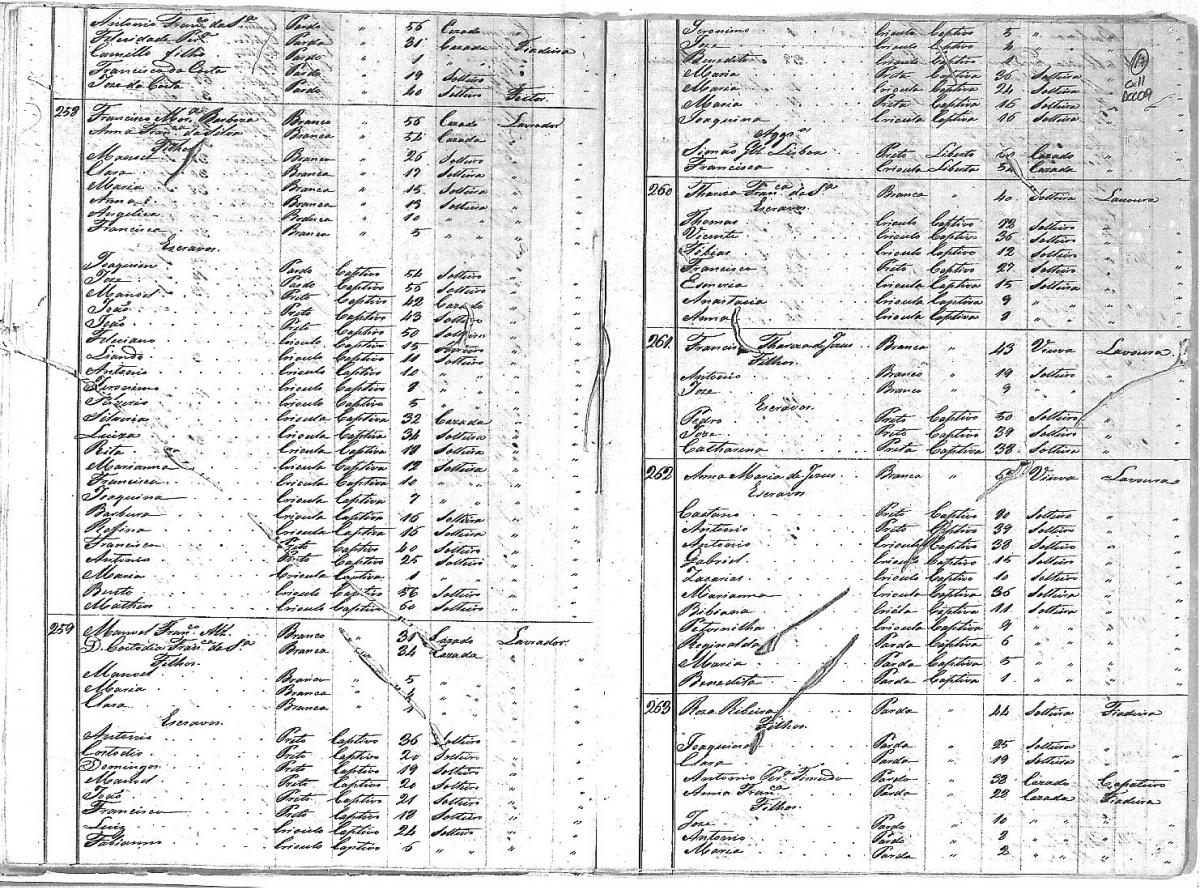 Antonio Franco da Sa Pardo " 56 Cazado
Felicidade Pardo " 31 Cazada Fiadeira
Camillo filho Pardo " 1 " "
Francisco da Costa Pardo " 19 Solteiro "
Joze da Costa Pardo " 40 Solteiro Feitor
258 Francisco Barboza Branco " 56 Cazado Lavrador
Anna Franca da Silva Branca " 54 Cazada
Filhos
Manoel Branco " 26 Solteiro "
Clara Branca " 17 Solteira "
Maria Branca " 15 Solteira "
Anna Branca " 13 Solteira "
Angelica Branca " 10 " "
Francisca Branca " 5 " "
Escravos
Joaquim Pardo Captivo 54 Solteiro "
Joze Pardo Captivo 55 Solteiro "
Manoel Preto Captivo 42 Cazado "
João Preto Captivo 43 Solteiro "
João Preto Captivo 50 Solteiro "
Feliciano Crioulo Captivo 15 Solteiro "
Liandro Crioulo Captivo 11 Solteiro "
Antonio Crioulo Captivo 10 " "
Jeronimo Crioulo Captivo " "
Crioulo Captivo 5 " "
Silvania Crioula Captiva 32 Cazada "
Luiza Crioula Captiva 34 Solteira "
Rita Crioula Captiva 18 Solteira "
Marianna Crioula Captiva 12 Solteira "
Francisca Crioula Captiva 10 " "
Joaquina Crioula Captiva 7 " "
Barbara Crioula Captiva 16 Solteira "
Rofina Crioula Captiva 16 Solteira "
Francisco Preto Captivo 40 Solteiro "
Antonio Preto Captivo 25 Solteiro "
Maria Crioula Captiva 1 " "
Bento Crioulo Captivo 56 Solteiro "
Matheus Crioulo Captivo 60 Solteiro "
259 Manoel Franco Alz. Branco " 31 Cazado Lavrador
D. Custodia Franca da Sa Branca " 34 Cazada
Filhos
Manoel Branco " 5 " "
Maria Branca " 4 " "
Clara Branca " " "
Escravos
Antonio Preto Captivo 36 Solteiro "
Custodio Preto Captivo 20 Solteiro "
Domingos Preto Captivo 19 Solteiro "
Manoel Preto Captivo 20 Solteiro "
João Preto Captivo 21 Solteiro "
Francisco Preto Captivo 18 Solteiro "
Luiz Crioulo Captivo 24 Solteiro "
Fabianno Crioulo Captivo 6 " "
Jeronimo Crioulo Captivo 5 " "
Joze Crioulo Captivo 4 " "
Benedito Crioulo Captivo 1 " "
Maria Preta Captiva 36 Solteira "
Maria Crioula Captiva 24 Solteira "
Maria Preta Captiva 16 Solteira "
Joaquina Crioula Captiva 16 Solteira "
Aggros
Simão Lisboa Preto Liberto Cazado "
Francisca Crioula Liberta 54 Cazada "
260 Thereza Franca da Sa Branca " 40 Solteira Lavoura
Escravos
Thomas Crioulo Captivo 72 Solteiro "
Vicente Crioulo Captivo 36 Solteiro "
Tobias Crioulo Captivo 12 Solteiro "
Francisco Preto Captivo 27 Solteiro "
Esmeria Crioula Captiva 15 Solteira "
Anastacia Crioula Captiva 9 " "
Anna Crioula Captiva " "
261 Thereza de Jezus Branca " 43 Viuva Lavoura
Filhos
Antonio Branco " 19 Solteiro "
Joze Branco " 9 " "
Escravos
Pedro Preto Captivo 50 Solteiro "
Joze Preto Captivo 39 Solteiro "
Catharina Preta Captiva 38 Solteira "
262 Anna Maria de Jezus Branca " Viuva Lavoura
Escravos
Caetano Preto Captivo Solteiro "
Antonio Preto Captivo 39 Solteiro "
Antonio Crioulo Captivo 38 Solteiro "
Gabriel Crioulo Captivo 15 Solteiro "
Zacarias Crioulo Captivo 10 Solteiro "
Marianna Crioula Captiva 36 Solteira "
Bibiana Captiva 11 Solteira "
Crioula Captiva 9 " "
Reginalda Parda Captiva 6 " "
Maria Parda Captiva 5 " "
Benedita Parda Captiva 1 " "
263 Roza Ribeira Parda " 44 Solteira Fiadeira
Filhos
Joaquina Parda " 25 Solteira "
Clara Parda " 19 Solteira "
Antonio Pardo " 38 Cazado Capateiro
Anna Franca Parda " 28 Cazada Fiadeira
Filhos
Joze Pardo " 10 " "
Antonio Pardo " 3 " "
Maria Parda " 2 " "